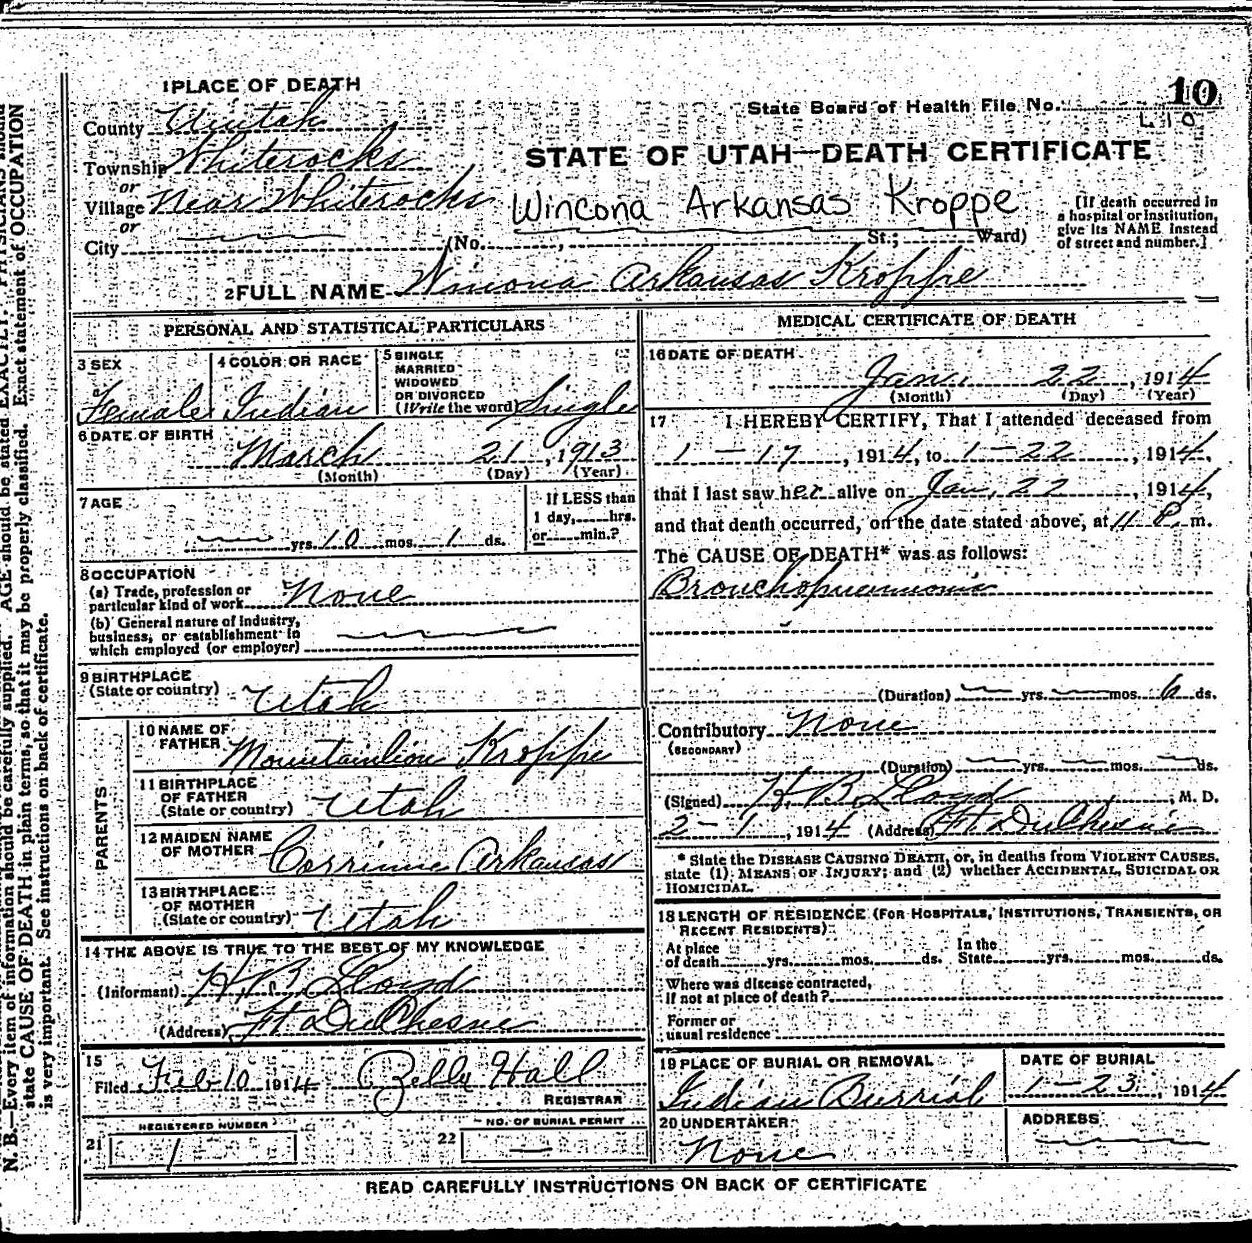 1 PLACE OF DEATH
County Uintah
Township Whiterocks
or
Village Near Whiterocks
or
City
State Board of Health File No. 10
L 10
STATE OF UTAH—DEATH CERTIFICATE
Wincona Arkansas Kroppe
(No. , St.; Ward)
[If death occurred in
a hospital or institution,
give its NAME instead
of street and number.]
2 FULL NAME Wincona Arkansas Kroppe
PERSONAL AND STATISTICAL PARTICULARS
3 SEX
Female
4 COLOR OR RACE
Indian
5 SINGLE
MARRIED
WIDOWED
OR DIVORCED
(Write the word) Single
6 DATE OF BIRTH
March 21, 1913
(Month) (Day) (Year)
7 AGE
yrs. 10 mos. 1 ds.
If LESS than
1 day, hrs.
or min.?
8 OCCUPATION
(a) Trade, profession or
particular kind of work None
(b) General nature of industry,
business, or establishment in
which employed (or employer)
9 BIRTHPLACE
(State or country) Utah
PARENTS
10 NAME OF
FATHER Mountainlion Kroppe
11 BIRTHPLACE
OF FATHER
(State or country) Utah
12 MAIDEN NAME
OF MOTHER Corrinne Arkansas
13 BIRTHPLACE
OF MOTHER
(State or country) Utah
14 THE ABOVE IS TRUE TO THE BEST OF MY KNOWLEDGE
(Informant) H. B. Lloyd
(Address) Ft DuChesne
15
Filed Feb 10 1914 Zella Hall
REGISTRAR
21 REGISTERED NUMBER
1
22 NO. OF BURIAL PERMIT
MEDICAL CERTIFICATE OF DEATH
16 DATE OF DEATH
Jan. 22, 1914
(Month) (Day) (Year)
17 I HEREBY CERTIFY, That I attended deceased from
1 - 17, 1914, to 1 - 22, 1914,
that I last saw her alive on Jan, 22, 1914,
and that death occurred, on the date stated above, at 11 P. m.
The CAUSE OF DEATH* was as follows:
Bronchopneumonia
(Duration) yrs. mos. 6 ds.
Contributory None
(SECONDARY)
(Duration) yrs. mos. ds.
(Signed) H. B. Lloyd, M. D.
2 - 1, 1914 (Address) Ft DuChesne
* State the DISEASE CAUSING DEATH, or, in deaths from VIOLENT CAUSES,
state (1) MEANS OF INJURY; and (2) whether ACCIDENTAL, SUICIDAL OR
HOMICIDAL.
18 LENGTH OF RESIDENCE (FOR HOSPITALS, INSTITUTIONS, TRANSIENTS, OR
RECENT RESIDENTS)
At place
of death yrs. mos. ds.
In the
State yrs. mos. ds.
Where was disease contracted,
if not at place of death?
Former or
usual residence
19 PLACE OF BURIAL OR REMOVAL
Indian Burrial
DATE OF BURIAL
1 - 23, 1914
20 UNDERTAKER
None
ADDRESS
READ CAREFULLY INSTRUCTIONS ON BACK OF CERTIFICATE
N. B.—Every item of information should be carefully supplied. AGE should be stated EXACTLY. PHYSICIANS should
state CAUSE OF DEATH in plain terms, so that it may be properly classified. Exact statement of OCCUPATION
is very important. See instructions on back of certificate.